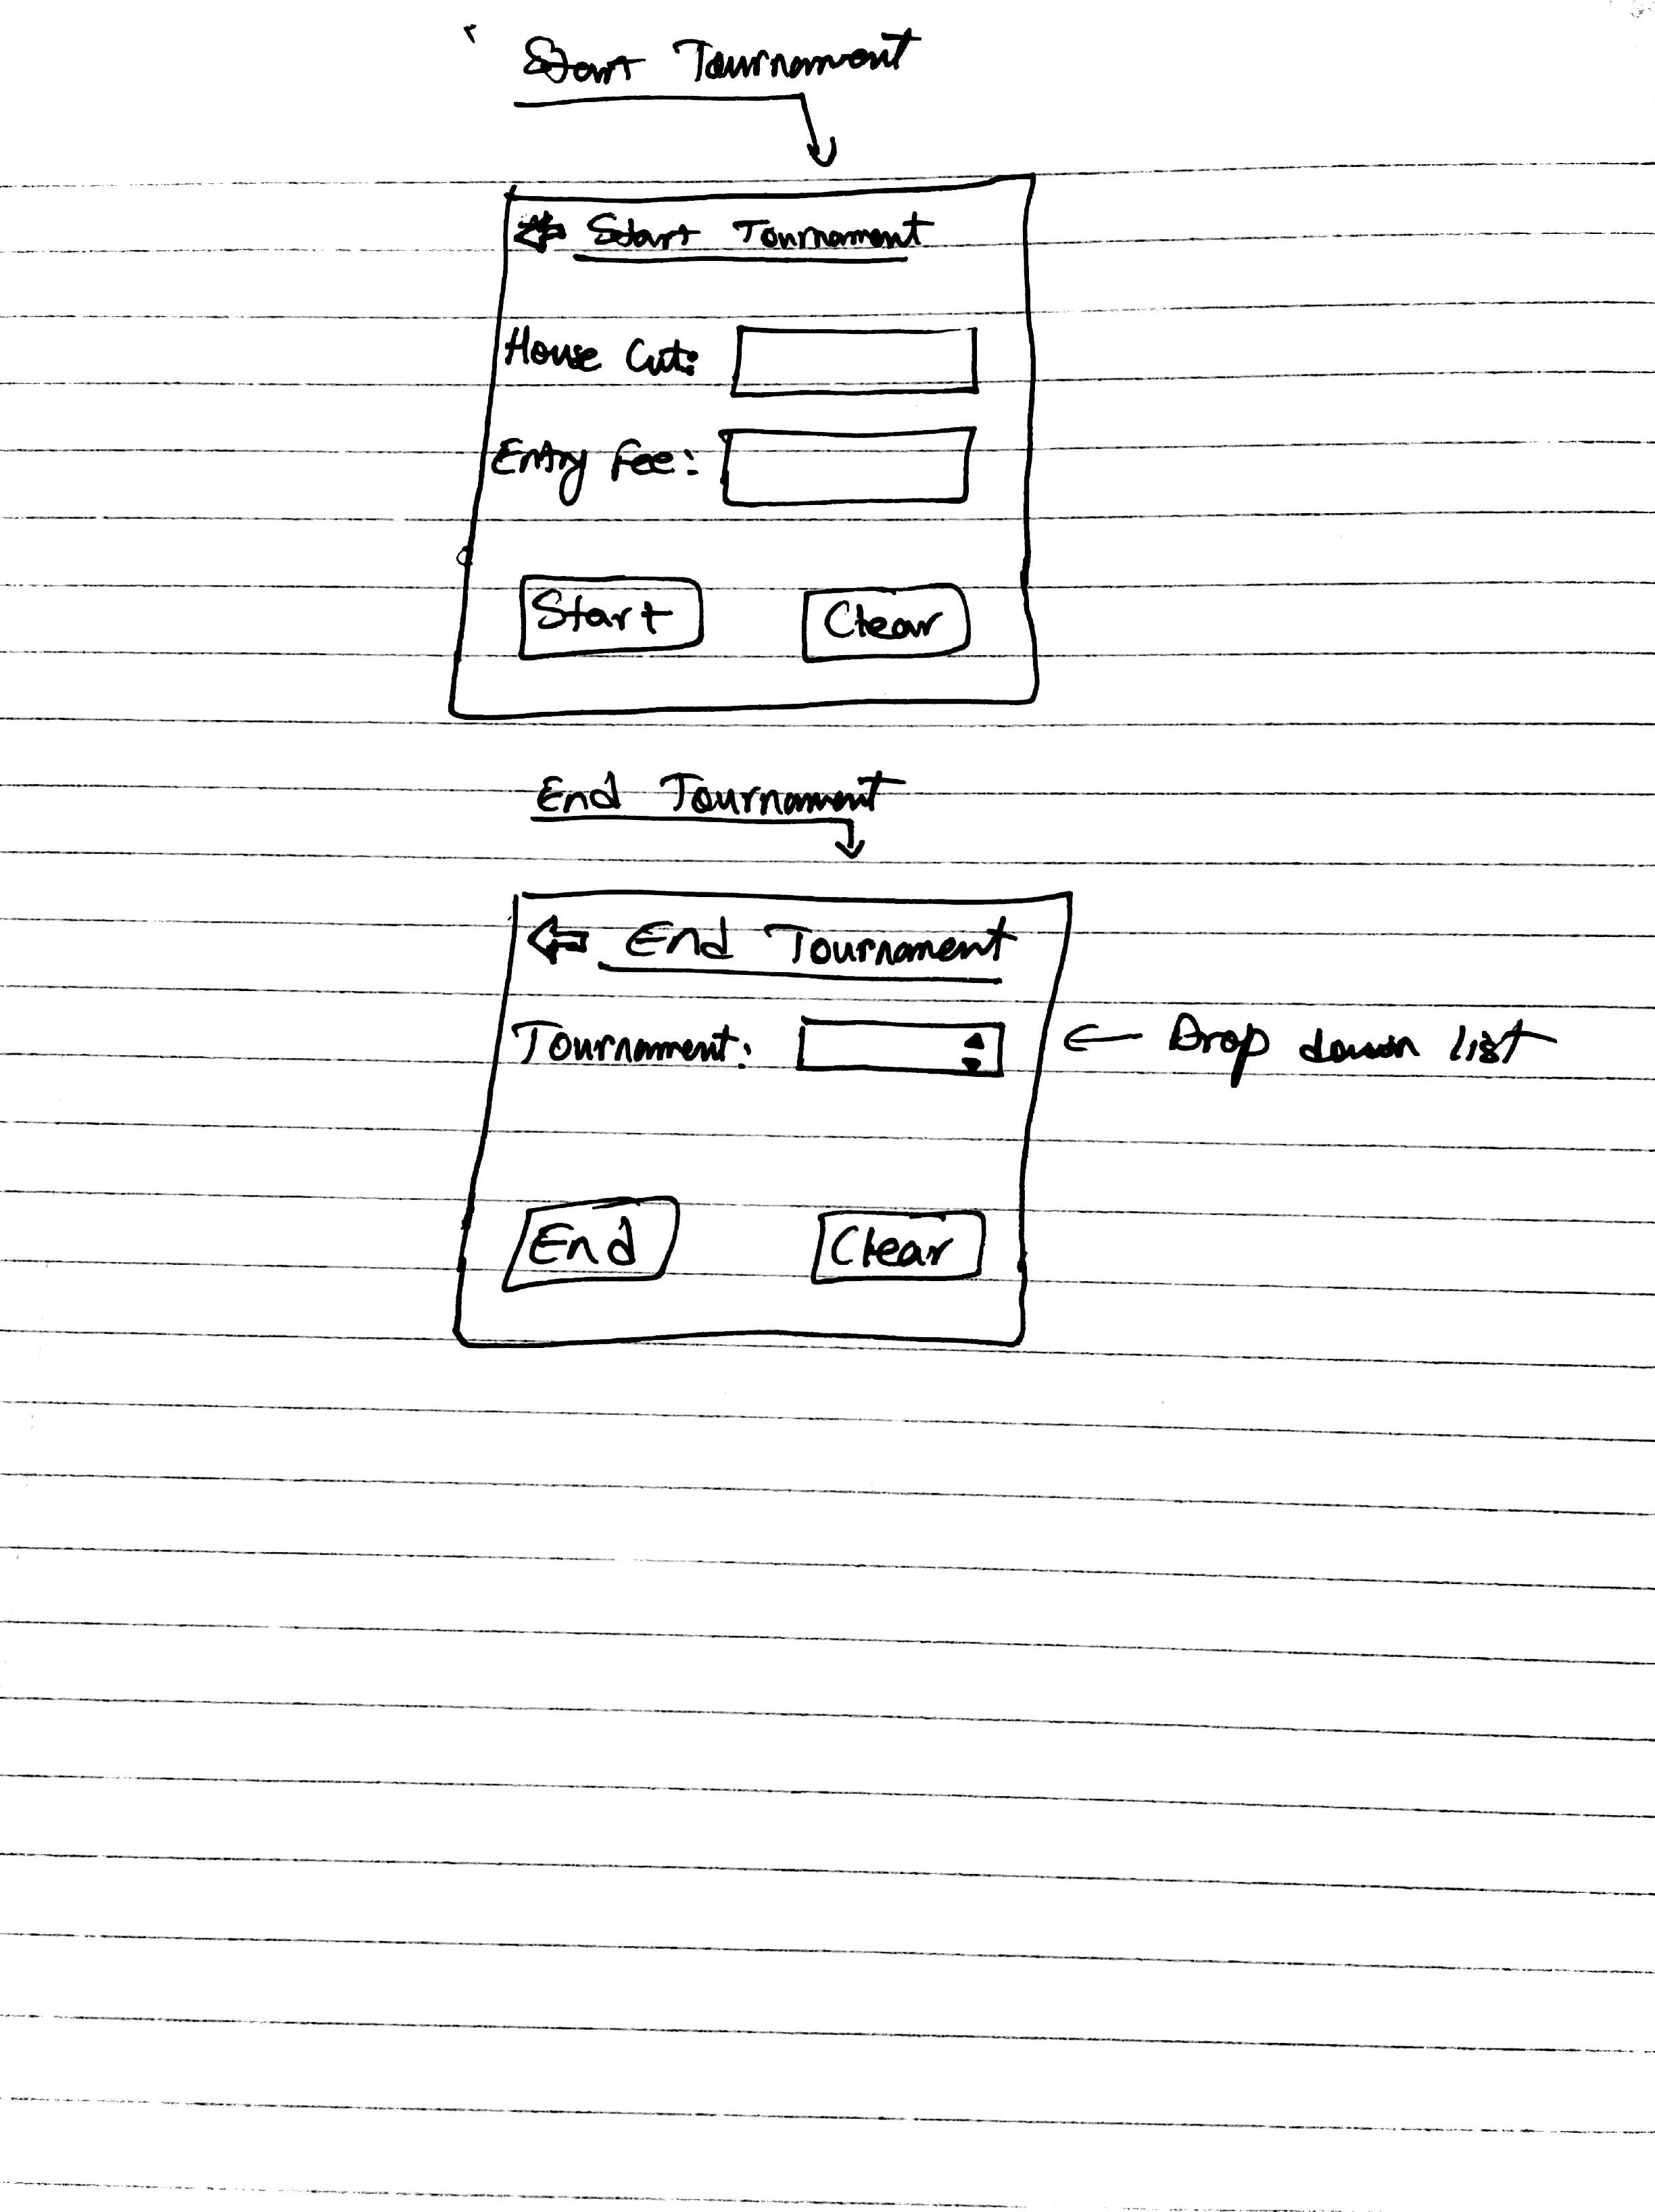 Start Tournament
Start Tournament
House Cut:
Entry Fee:
Start Clear
End Tournament
End Tournament
Tournament: ← Drop down list
End Clear